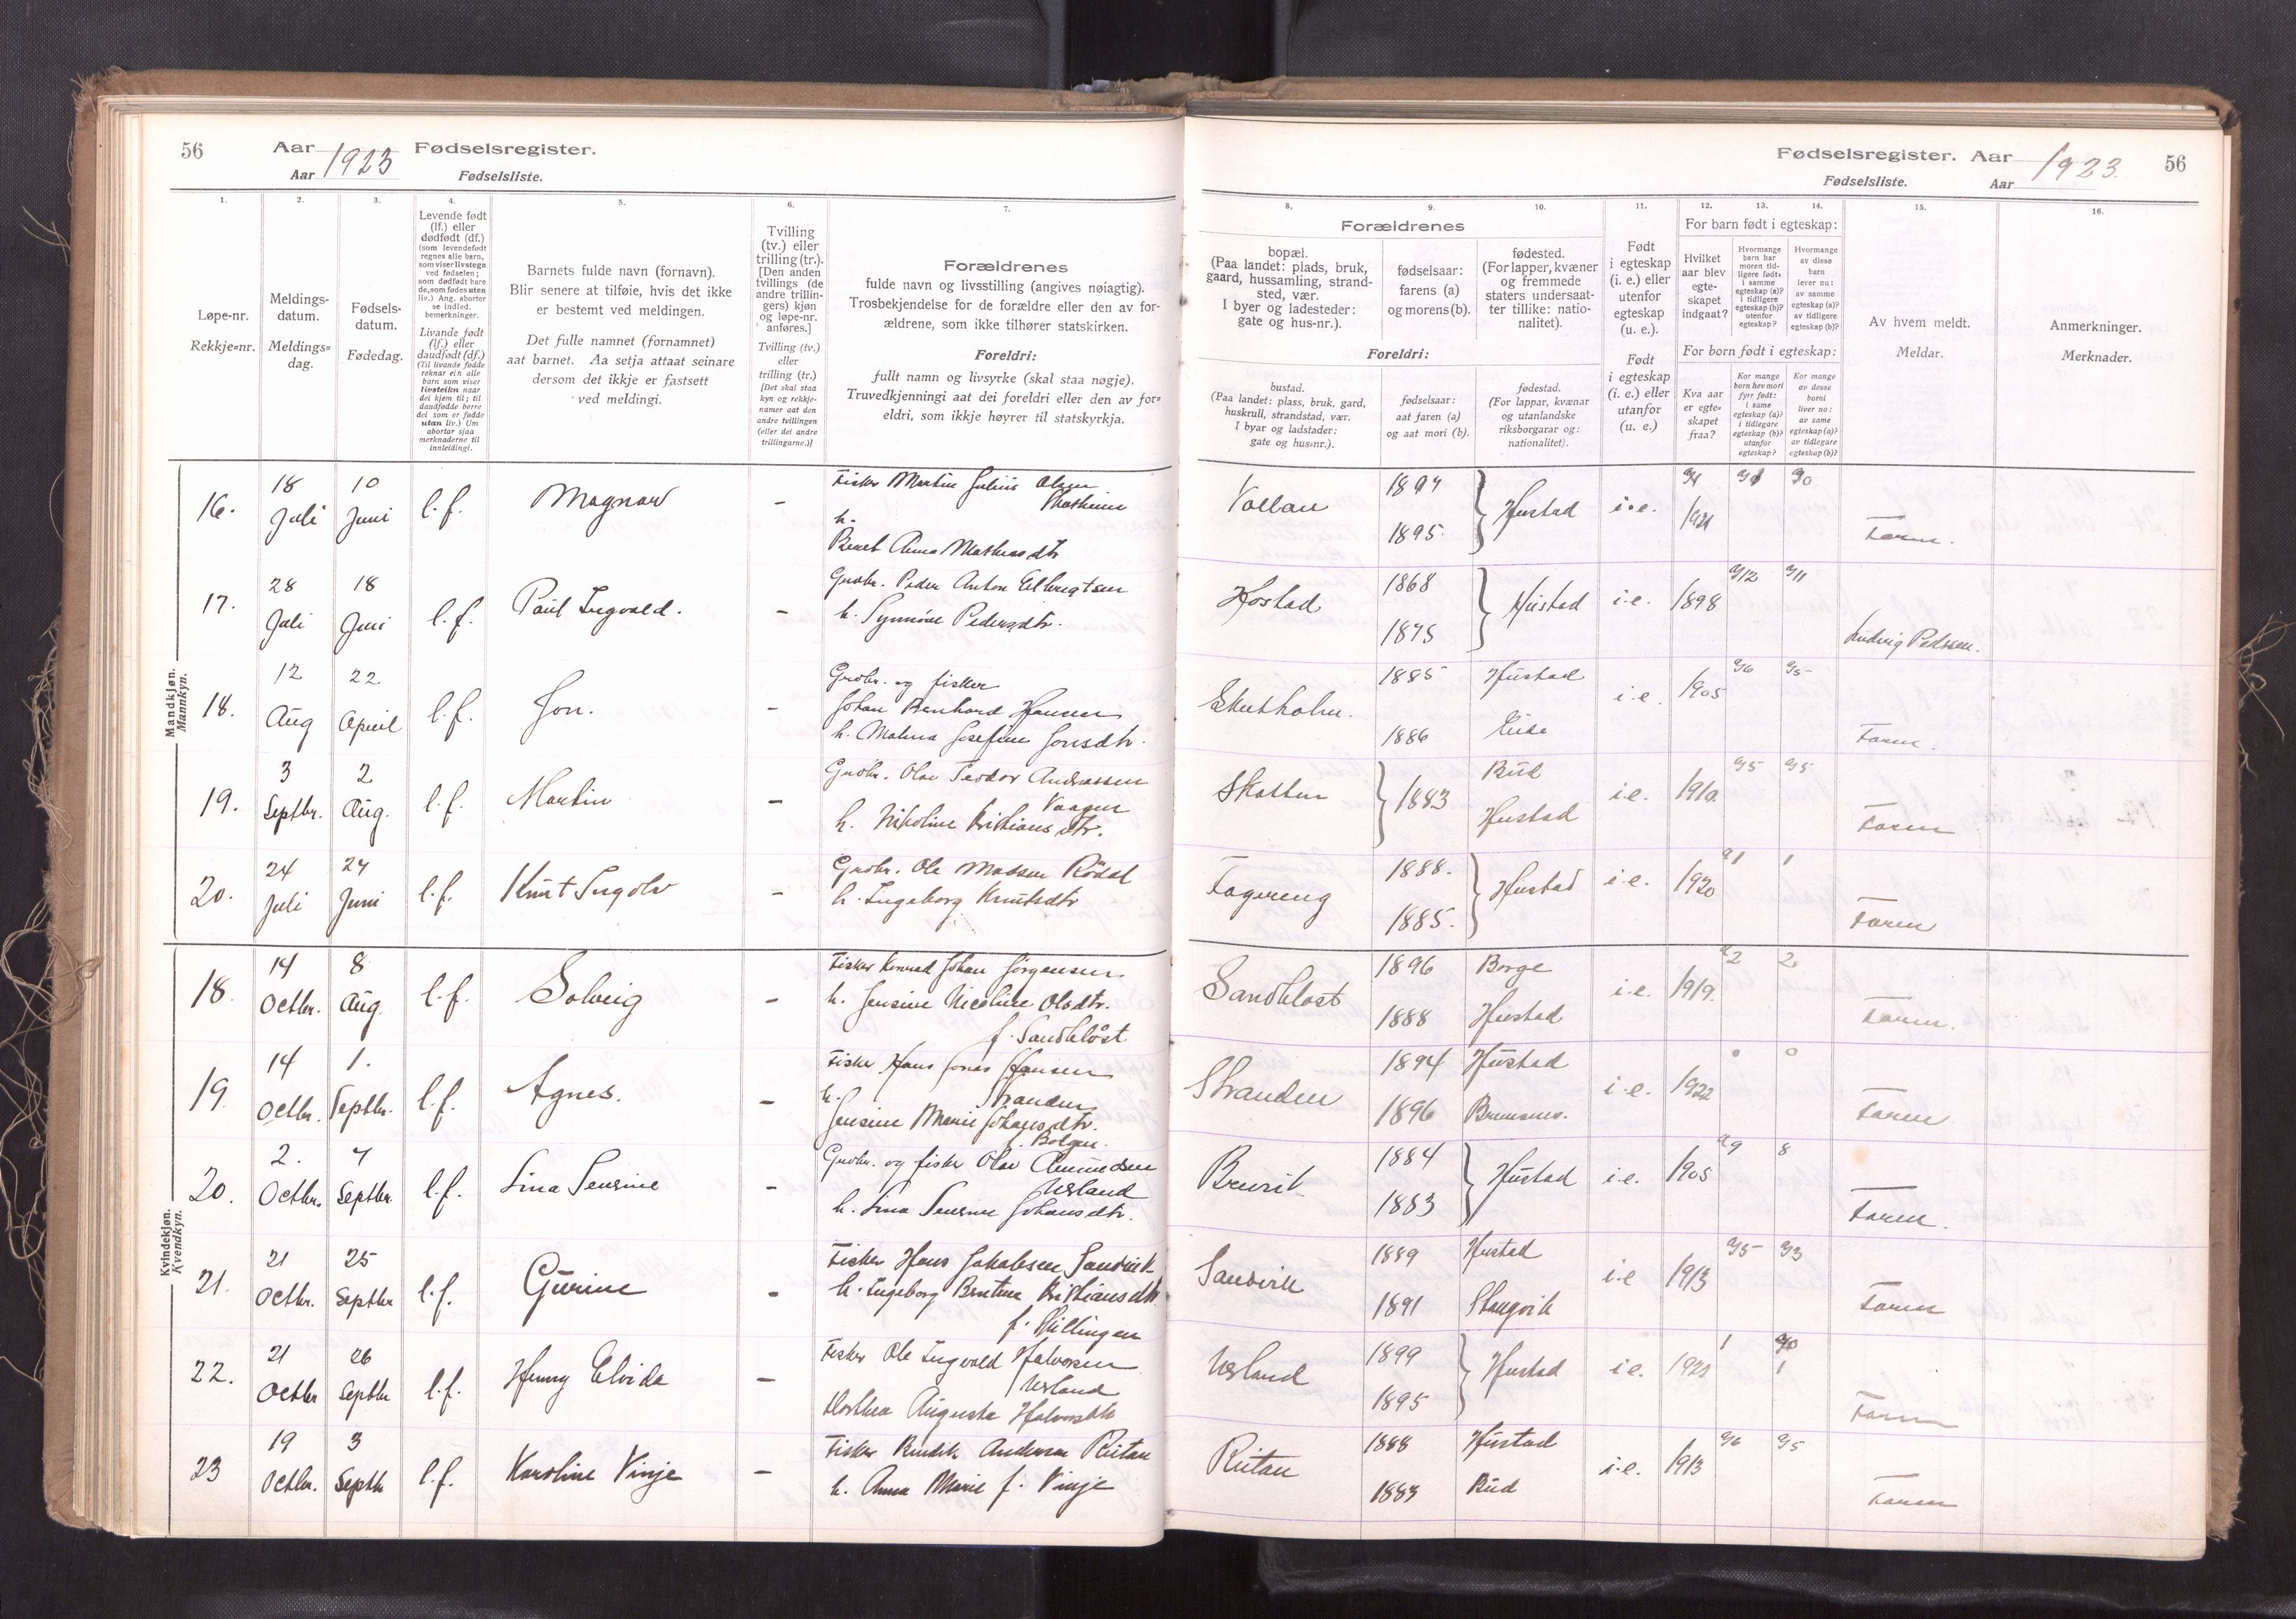 56 Aar 1923 Fødselsregister.
Aar Fødselsliste.
1.
2.
3.
4.
5.
6.
7.
Løpe-nr.
Rekkje=nr.
Meldings-
datum.
Meldings=
dag.
Fødsels-
datum.
Fødedag.
Levende født
(lf.) eller
dødfødt (df.)
(som levendefødt
regnes alle barn,
som viser livstegn
ved fødselen;
som dødfødt bare
de, som fødes uten
liv.) Ang. aborter
se indled.
bemerkninger.
Livande født
(lf.) eller
daudfødt (df.)
(Til livande fødde
reknar ein alle
barn som viser
livsteikn naar
dei kjem til; til
daudfødde berre
dei som er fødde
utan liv.) Um
abortar sjaa
merknaderne til
innleidingi.
Barnets fulde navn (fornavn).
Blir senere at tilføie, hvis det ikke
er bestemt ved meldingen.
Det fulle namnet (fornamnet)
aat barnet. Aa setja attaat seinare
dersom det ikkje er fastsett
ved meldingi.
Tvilling
(tv.) eller
trilling (tr.).
[Den anden
tvillings (de
andre trillin-
gers) kjøn
og løpe-nr.
anføres.]
Tvilling (tv.)
eller
trilling (tr.)
[Det skal staa
kyn og rekkje-
numer aat den
andre tvillingen
(eller dei andre
trillingarne.)]
Forældrenes
fulde navn og livsstilling (angives nøiagtig).
Trosbekjendelse for de forældre eller den av for-
ældrene, som ikke tilhører statskirken.
Foreldri:
fullt namn og livsyrke (skal staa nøgje).
Truvedkjenningi aat dei foreldri eller den av for=
eldri, som ikkje høyrer til statskyrkja.
Mandkjøn.
Mannkyn.
16. 18 Juli 10 Juni l.f. Magnar -
Fisker Martin Julius Olsen
h.
Anna
17. 28 Juli 18 Juni l.f. Paul Ingvald. -
Grdbr. Peder Anton
h. Synnøve Pedersdtr.
18. 12 Aug 22 April l.f. Jon. -
Grdbr. og fisker
Johan Bernhard Hansen
h. Malena Josefine Jonsdtr.
19. 3 Septbr. 2 Aug. l.f. Martin -
Grdbr. Olav Teodor Andreassen
Vaagen
h. Nikoline Kristiansdtr.
20. 24 Juli 24 Juni l.f. Knut Ingolv -
Grdbr. Ole Madsen Rödal
h. Ingeborg Knutsdtr
Kvindekjøn.
Kvendkyn.
18. 14 Octbr. 8 Aug. l.f. Solveig -
Fisker Konrad Johan Jörgensen
h. Jensine Nicoline Olsdtr.
f. Sandbløst
19. 14 Octbr. 1. Septbr. l.f. Agnes. -
Fisker Hans Jonas Hansen
h. Stranden
Jensine Marie Johansdtr.
f. Bolgen.
20. 2. Octbr. 7 Septbr. l.f. Lina Sensine -
Grdbr. og fisker Olav
h. Lina Johansdtr.
21. 21 Octbr. 25 Septbr l.f. Gurine -
Fisker Hans Jakobsen Sandvik
h. Ingeborg Bentine Kristiansdtr
f. Hüllingen
22. 21 Octbr 26 Septbr l.f. Henny Elvida -
Fisker Ole Ingvald Halvorsen
Dorthea Augusta Halvorsdtr
23 19 Octbr. 3 Septbr l.f. Karoline Vinje -
Fisker Andersen Rütan
h. Anna Marie f. Vinje
Fødselsregister. Aar 1923. 56
Fødselsliste. Aar
8.
9.
10.
11.
12.
13.
14.
15.
16.
Forældrenes
bopæl.
(Paa landet: plads, bruk,
gaard, hussamling, strand-
sted, vær.
I byer og ladesteder:
gate og hus-nr.).
fødselsaar:
farens (a)
og morens (b).
fødested.
(For lapper, kvæner
og fremmede
staters undersaat-
ter tillike: natio-
nalitet).
Foreldri:
bustad.
(Paa landet: plass, bruk, gard,
huskrull, strandstad, vær.
I byar og ladstader:
gate og hus=nr.).
fødselsaar:
aat faren (a)
og aat mori (b).
fødestad.
(For lappar, kvænar
og utanlandske
riksborgarar og:
nationalitet).
Født
i egteskap
(i. e.) eller
utenfor
egteskap
(u. e.).
Født
i egteskap
(i. e.) eller
utanfor
(u. e.)
For barn født i egteskap:
Hvilket
aar blev
egte-
skapet
indgaat?
Hvormange
barn har
moren tid-
ligere født:
i samme
egteskap (a)?
i tidligere
egteskap (b)?
utenfor
egteskap?
Hvormange
av disse
barn
lever nu:
av samme
egteskap (a)?
av tidligere
egteskap (b)?
For born født i egteskap:
Kva aar
er egte=
skapet
fraa?
Kor mange
born hev mori
fyrr født:
i same
egteskap (a)?
i tidlegare
egteskap (b)?
utanfor
egteskap?
Kor mange
av desse
borni
liver no:
av same
egteskap (a)?
av tidlegare
egteskap (b)?
Av hvem meldt.
Meldar.
Anmerkninger.
Merknader.
Vollan 1897 1895. Hustad i.e. 1921 Faren.
Hostad 1868 1875 Hustad i.e. 1898 a/12 a/11 Ludvig Pedersen.
Skutholm. 1885 1886 Hustad Eide i.e. 1905 a/6 a/5 Faren.
Skotten 1883 Bud Hustad i.e. 1910. a/5 a/5 Faren
Fagereng 1888. 1885. Hustad i.e. 1920 a1 1 Faren
Sandbløst 1896 1888 Borge Hustad i.e. 1919. a2 2 Faren.
Stranden 1894 1896 Hustad Bremsnes. i.e. 1922 0 0 Faren
1884 1883 Hustad i.e. 1905 a9 8 Faren.
Sandvik 1889 1891 Hustad Stangvik i.e 1913 a/5 a/3 Faren
1899 1895 Hustad i.e. 1 1 Faren
Rütan 1888 1883 Hustad Bud i.e. 1913 a/6 a/5 Faren